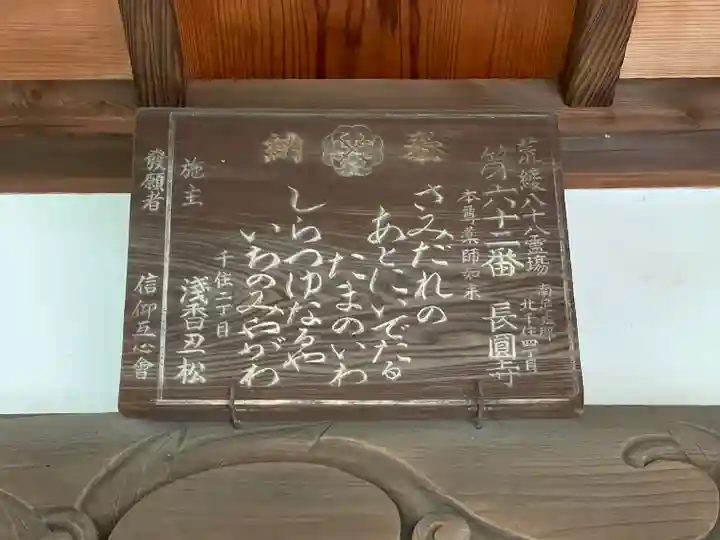 奉納
荒綾八十八霊場
南足立郡
北千住四丁目
第六十二番 長圓寺
本尊薬師如来
さみだれの
あとにいでたる
たまのいわ
しらつゆなるや
いちのみやがわ
千住二丁目
施主 淺香丑松
發願者 信仰互心會